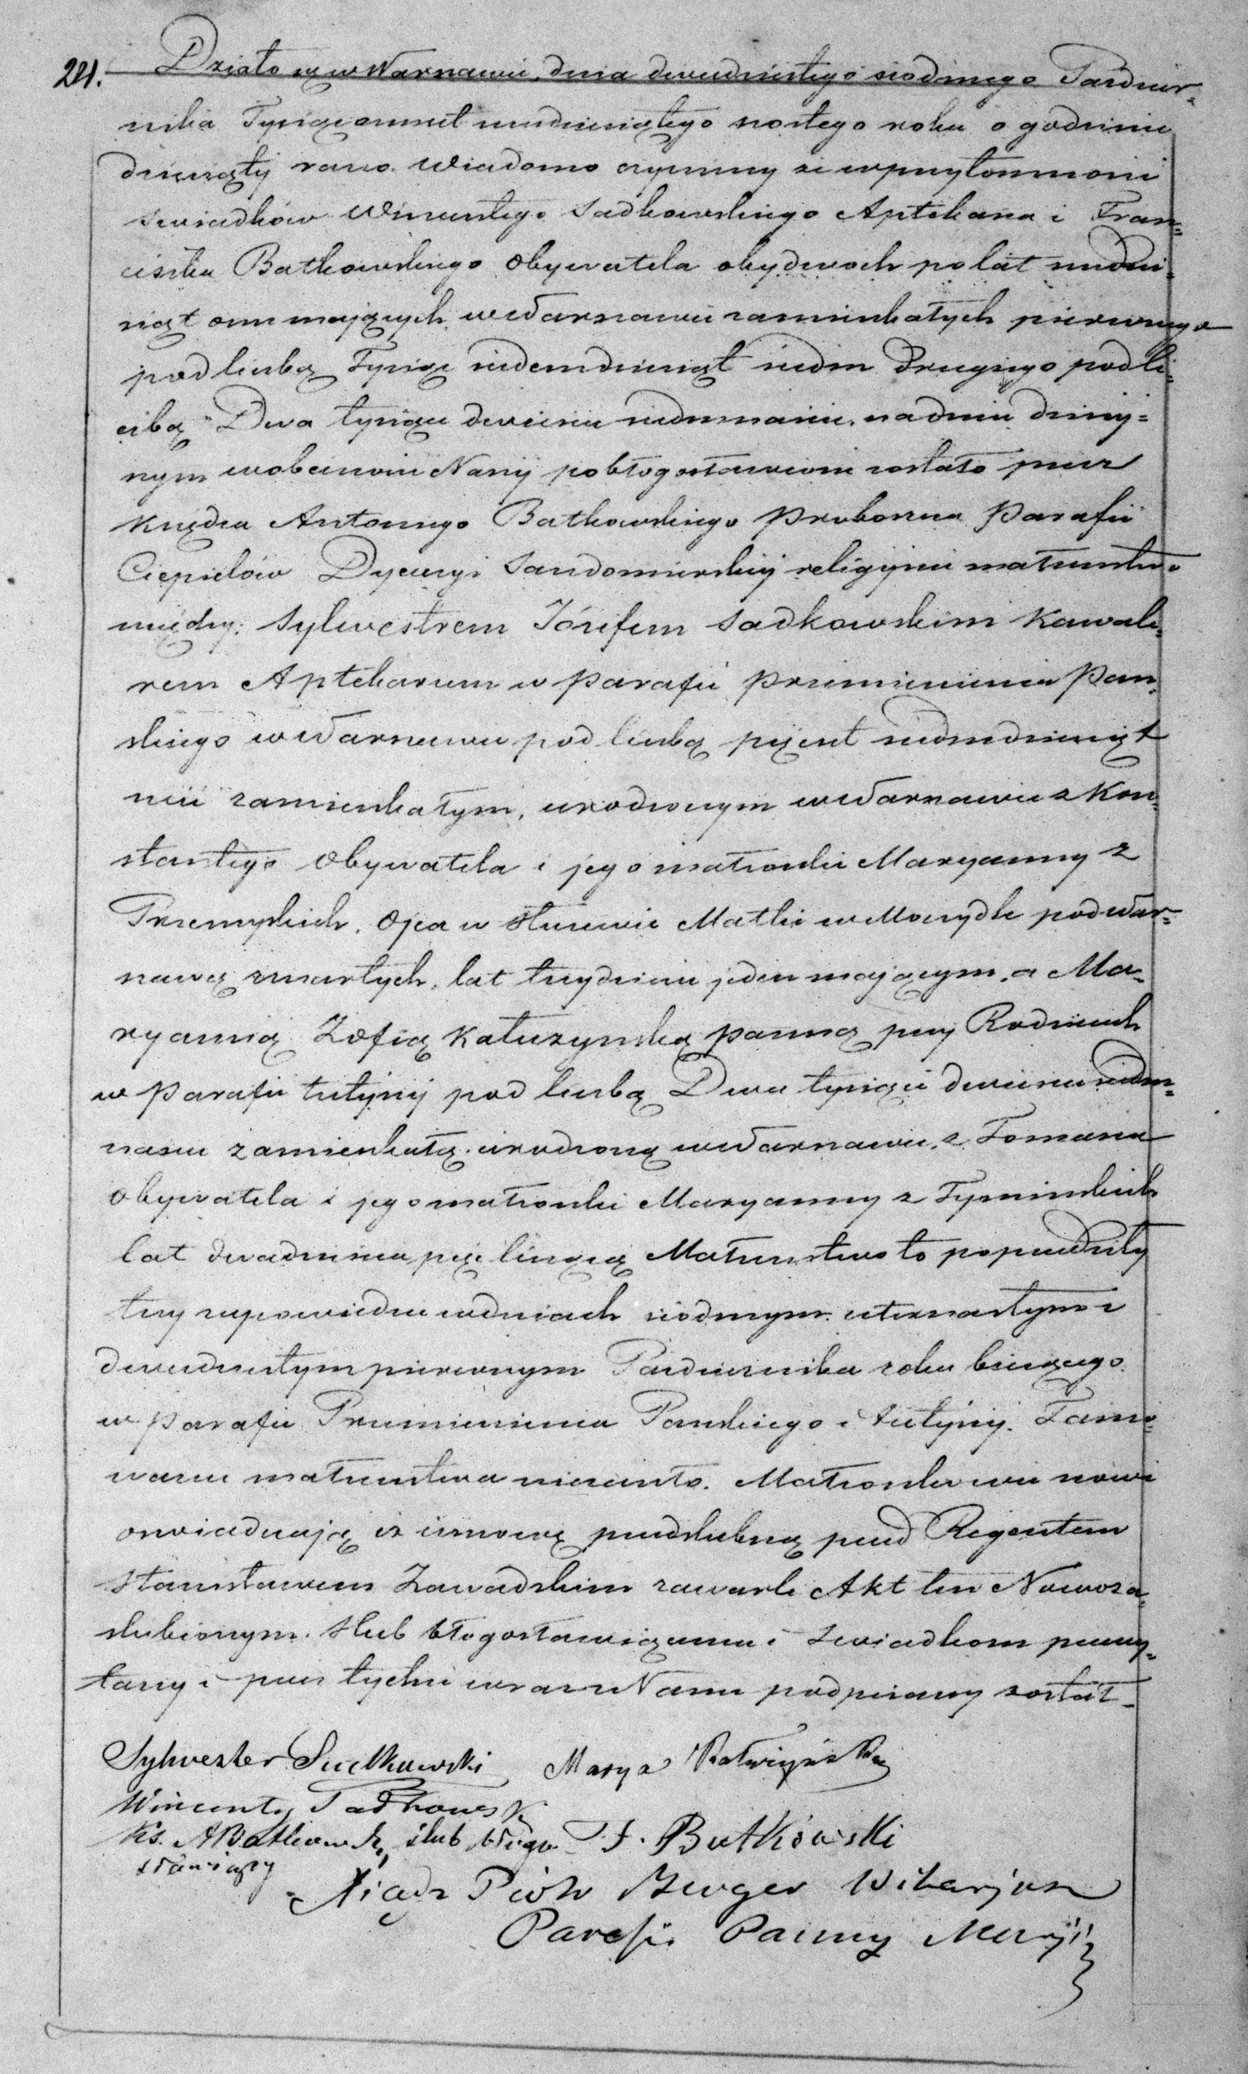 221. Działo się w Warszawie, dnia dwudziestego siodmego Paździer-
nika Tysiąc osmset sześćdziesiątego szóstego roku o godzinie
dziewiątej rano. Wiadomo czynimy że w przytomności
świadków Wincentego Sadkowskiego Aptekarza i Fran-
ciszka Batkowskiego Obywatela obydwoch po lat sześćdzie-
siąt osm mających, w Warszawie zamieszkałych pierwszego
pod liczbą Tysiąc siedemdziesiąt siedm Drugiego pod li-
czbą Dwa tysiące dwieście siedmnaście, na dniu dzisiej-
szym w obecności Naszej pobłogosławione zostało przez
Księdza Antoniego Batkowskiego Proboszcza Parafii
Ciepielów Dyecezyi Sandomierskiej religijne małżeństwo
między: Sylwestrem Józefem Sadkowskim Kawale-
rem Aptekarzem w Parafii Przemienienia Pań-
skiego w Warszawie pod liczbą pięćset siedmdziesiąt
zamieszkałym, urodzonym w Warszawie z Kon-
stantego Obywatela i jego małżonki Maryanny z
Przemyskich, Ojca w Służewie Matki w Marydk pod War-
szawą zmarłych, lat trzydzieści jeden mającym, a Ma-
ryanną Zofią Kałuzyńską panną przy Rodzicach
w Parafii tutejszej pod liczbą Dwa tysiące dwieście siedm-
naście zamieszkałą, urodzoną w Warszawie, z Tomasza
Obywatela i jego małżonki Maryanny z Tymińskich
lat dwadzieścia pięć liczącą Małżeństwo to poprzedziły
trzy zapowiedzie w dniach siodmym czternastym i
dwudziestym pierwszym Października roku bieżącego
w Parafii Przemienienia Pańskiego i tutejszej. Tamo-
wanie małżeństwa nie zaszło. Małżonkowie nowi
oswiadczają iż umowę przedślubną przed Regentem
Stanisławem Zawadzkim zawarli Akt ten Nowoza-
ślubionym, Ślub błogosławiącemu i świadkom przeczy-
tany i przez tychże wraz z Nami podpisany został.
Sylwester Sadkowski Marya Kałuzyńska
Wincenty Sadkowski
Ks. A Batkowski ślub błogo- F. Batkowski
sławiący
Xiądz Piotr Wikaryusz
Parafii Panny Maryi